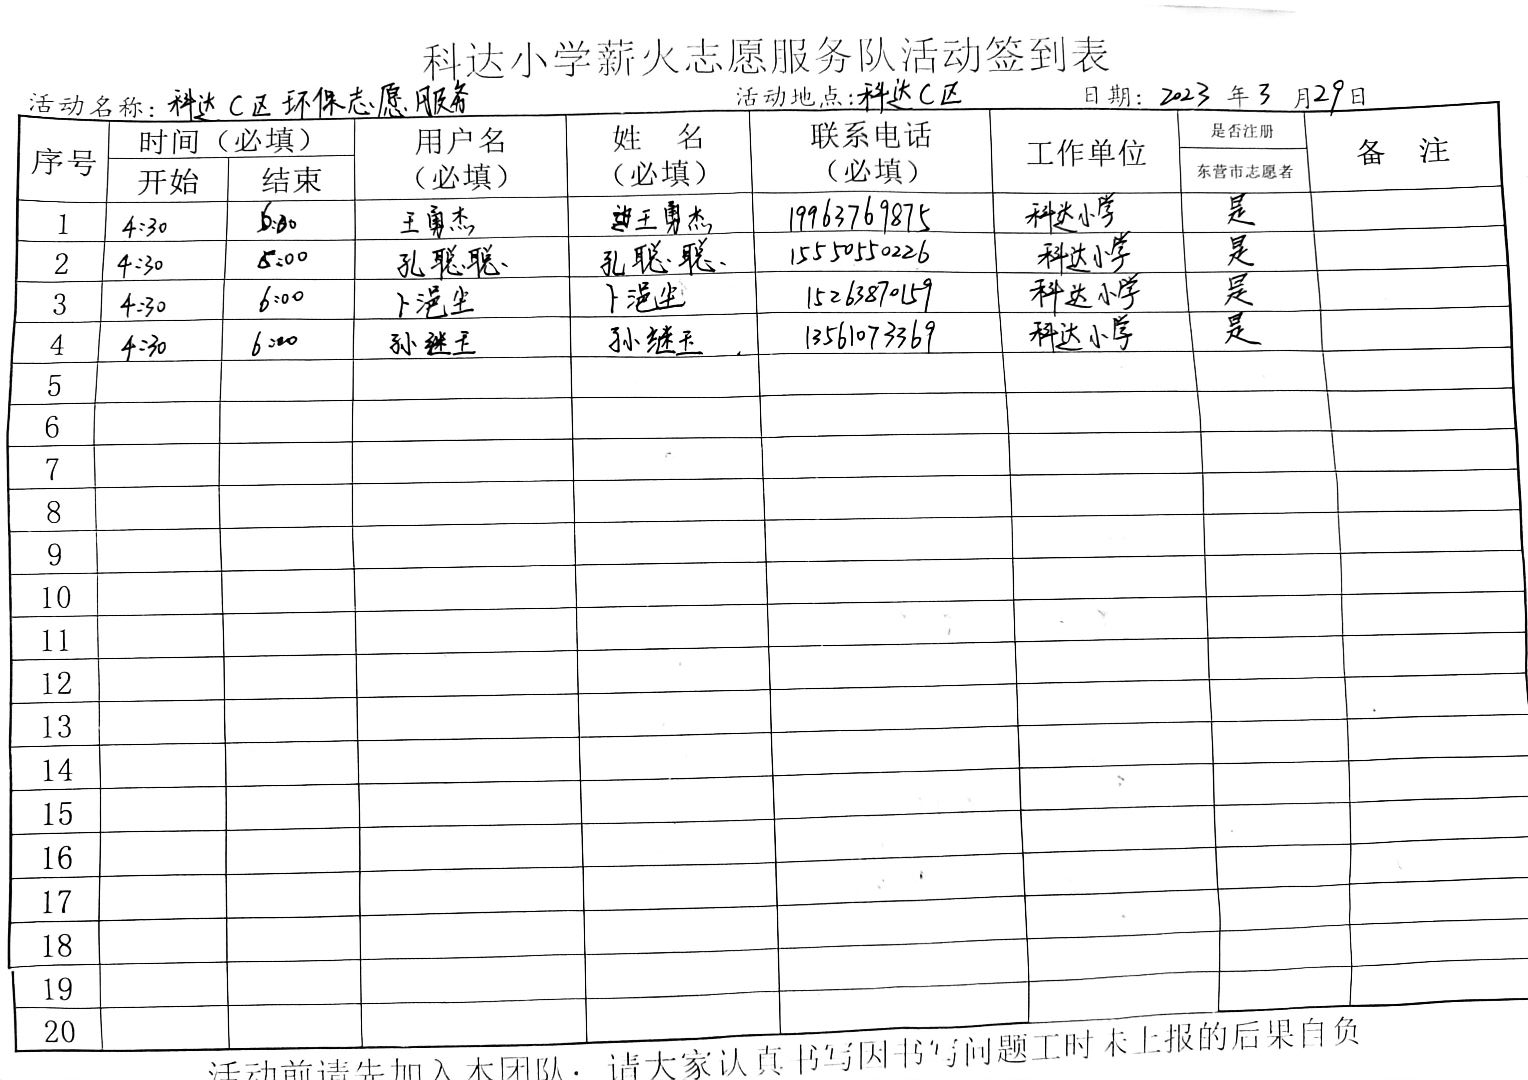 科达小学薪火志愿服务队活动签到表
活动名称：科达C区环保志愿服务 活动地点：科达C区 日期：2023年3月29日
序号 时间（必填） 用户名（必填） 姓 名（必填） 联系电话（必填） 工作单位 是否注册 备 注
开始 结束 东营市志愿者
1 4:30 王勇杰 王勇杰 19963769875 科达小学 是
2 4:30 5:00 孔聪聪 孔聪聪 15550550226 科达小学 是
3 4:30 6:00 卜浥尘 卜浥尘 15263870159 科达小学 是
4 4:30 6:00 孙继玉 孙继玉 13561073369 科达小学 是
5
6
7
8
9
10
11
12
13
14
15
16
17
18
19
20
活动前请先加入本团队；请大家认真书写因书写问题工时未上报的后果自负